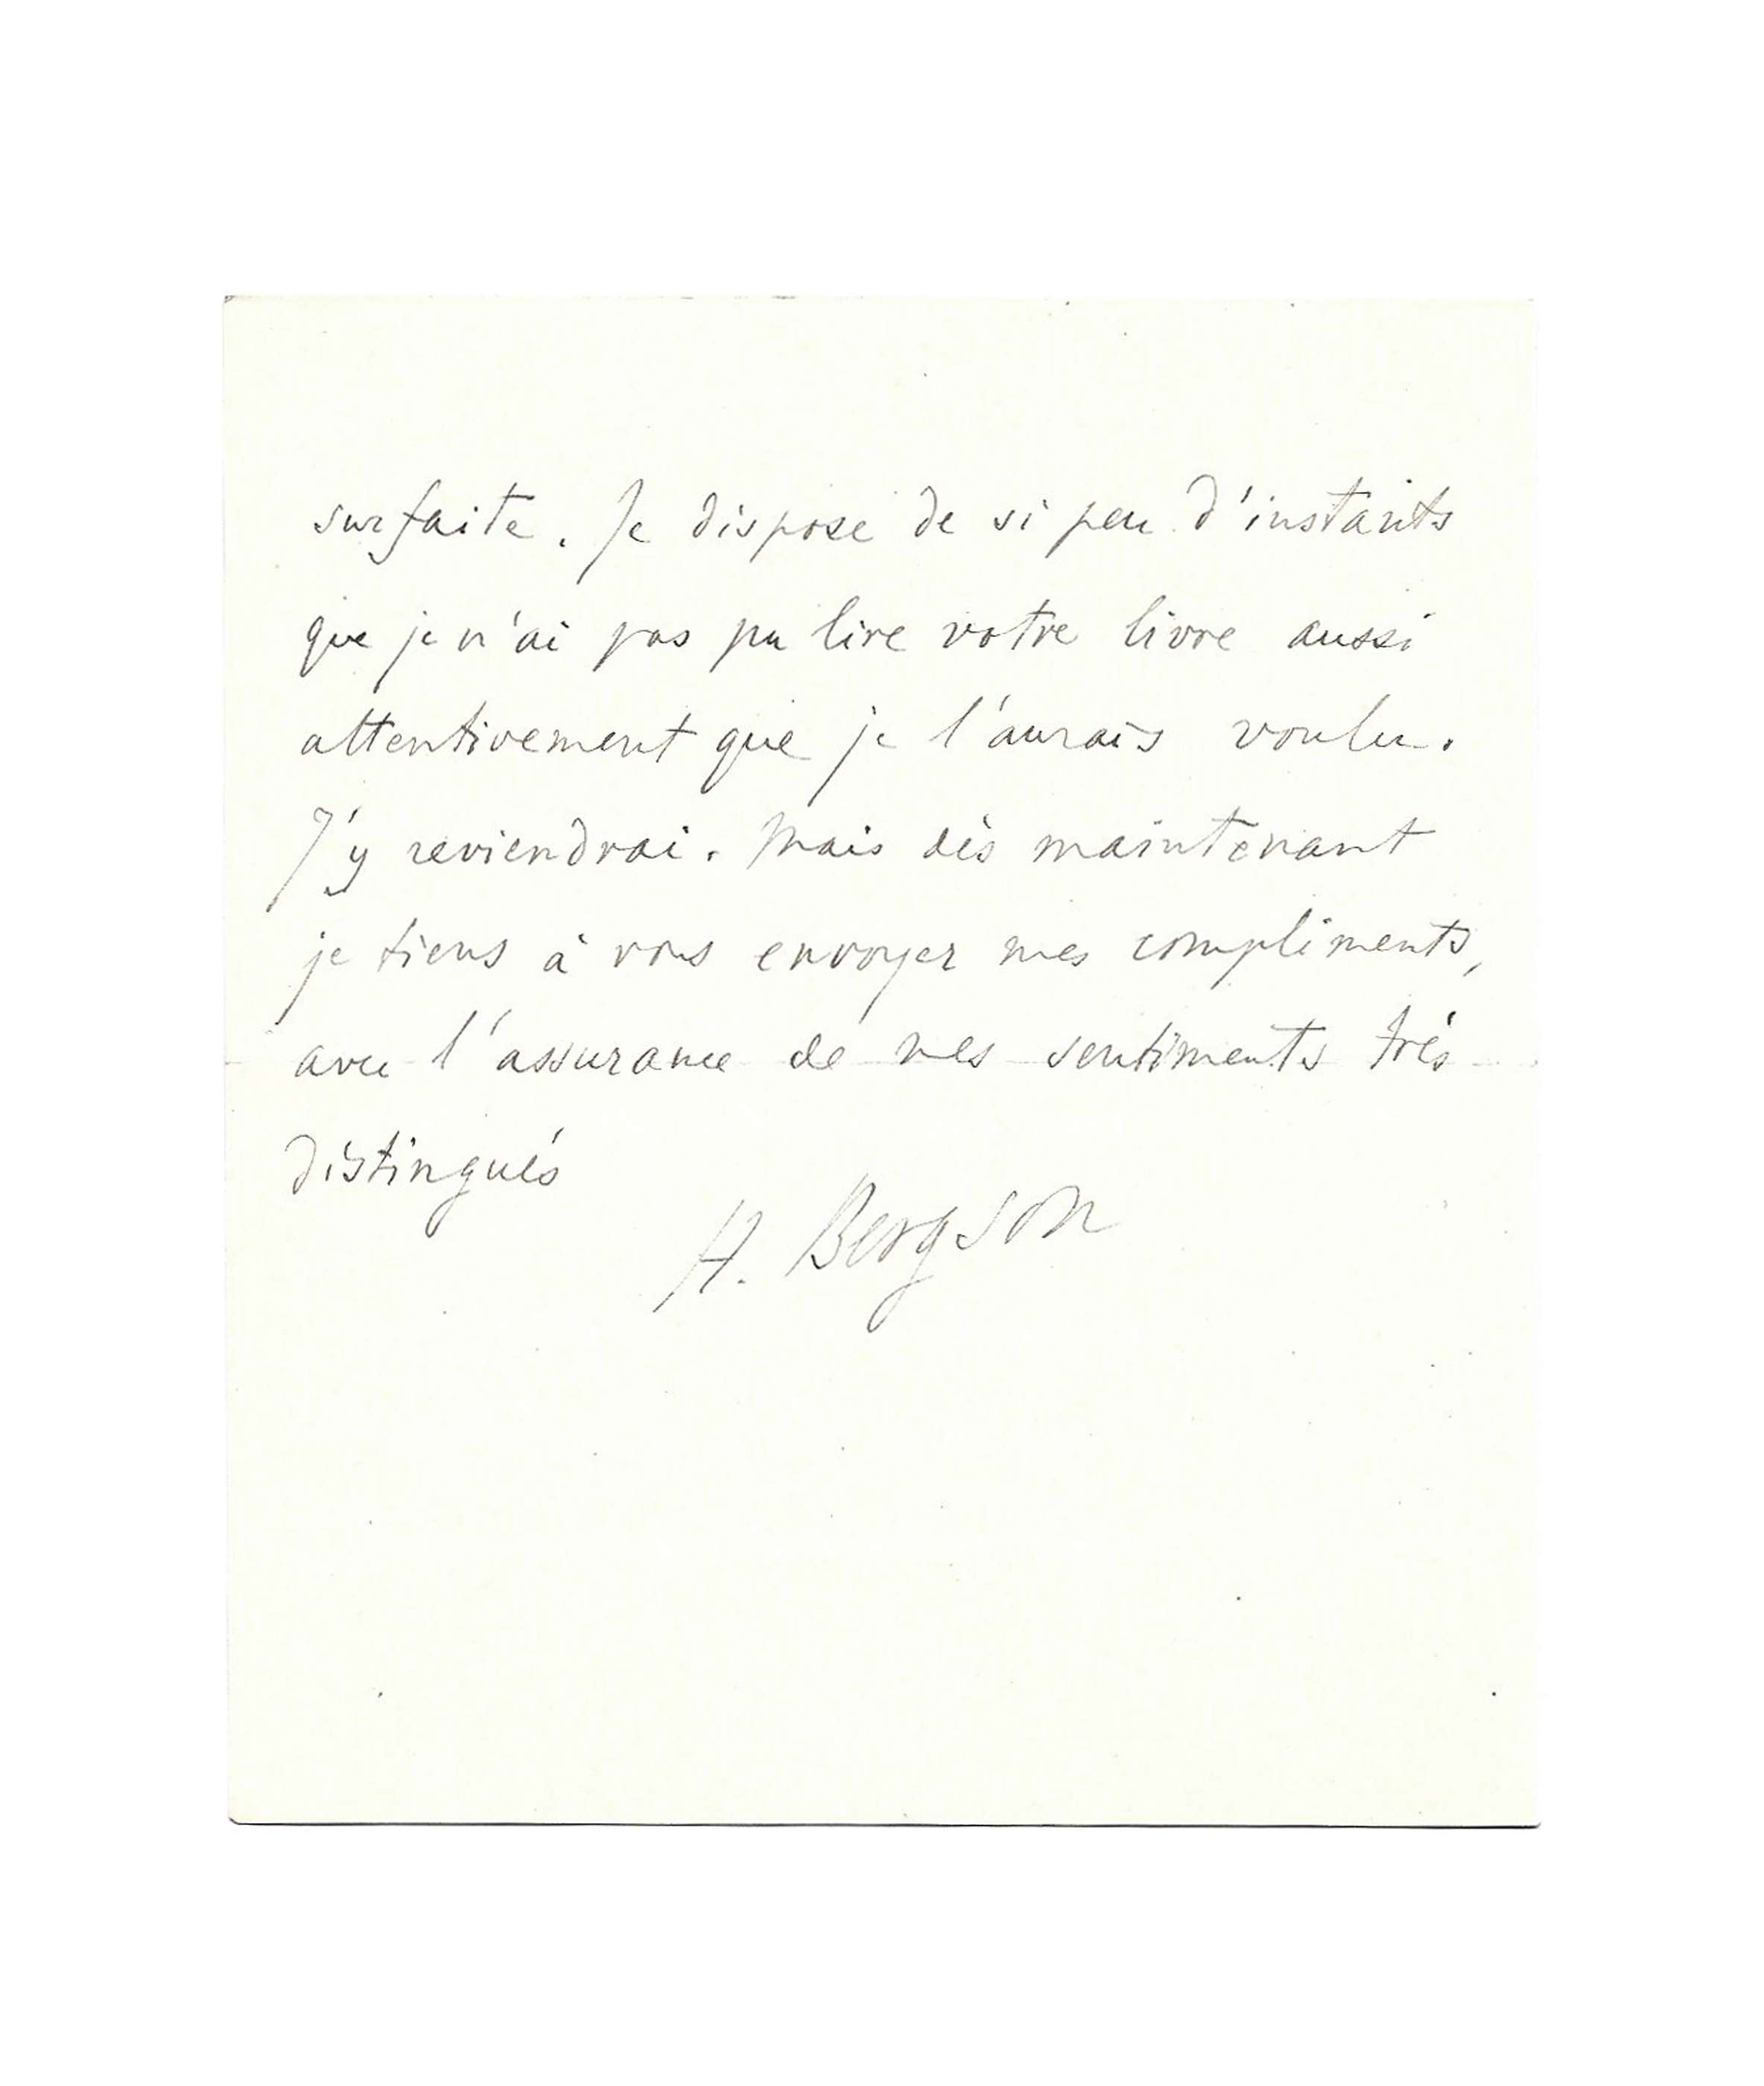 surfaite. Je dispose de si peu d'instants
que je n'ai pas pu lire votre livre aussi
attentivement que je l'aurais voulu.
J'y reviendrai. Mais dès maintenant
je tiens à vous envoyer mes compliments,
avec l'assurance de mes sentiments très
distingués
H. Bergson